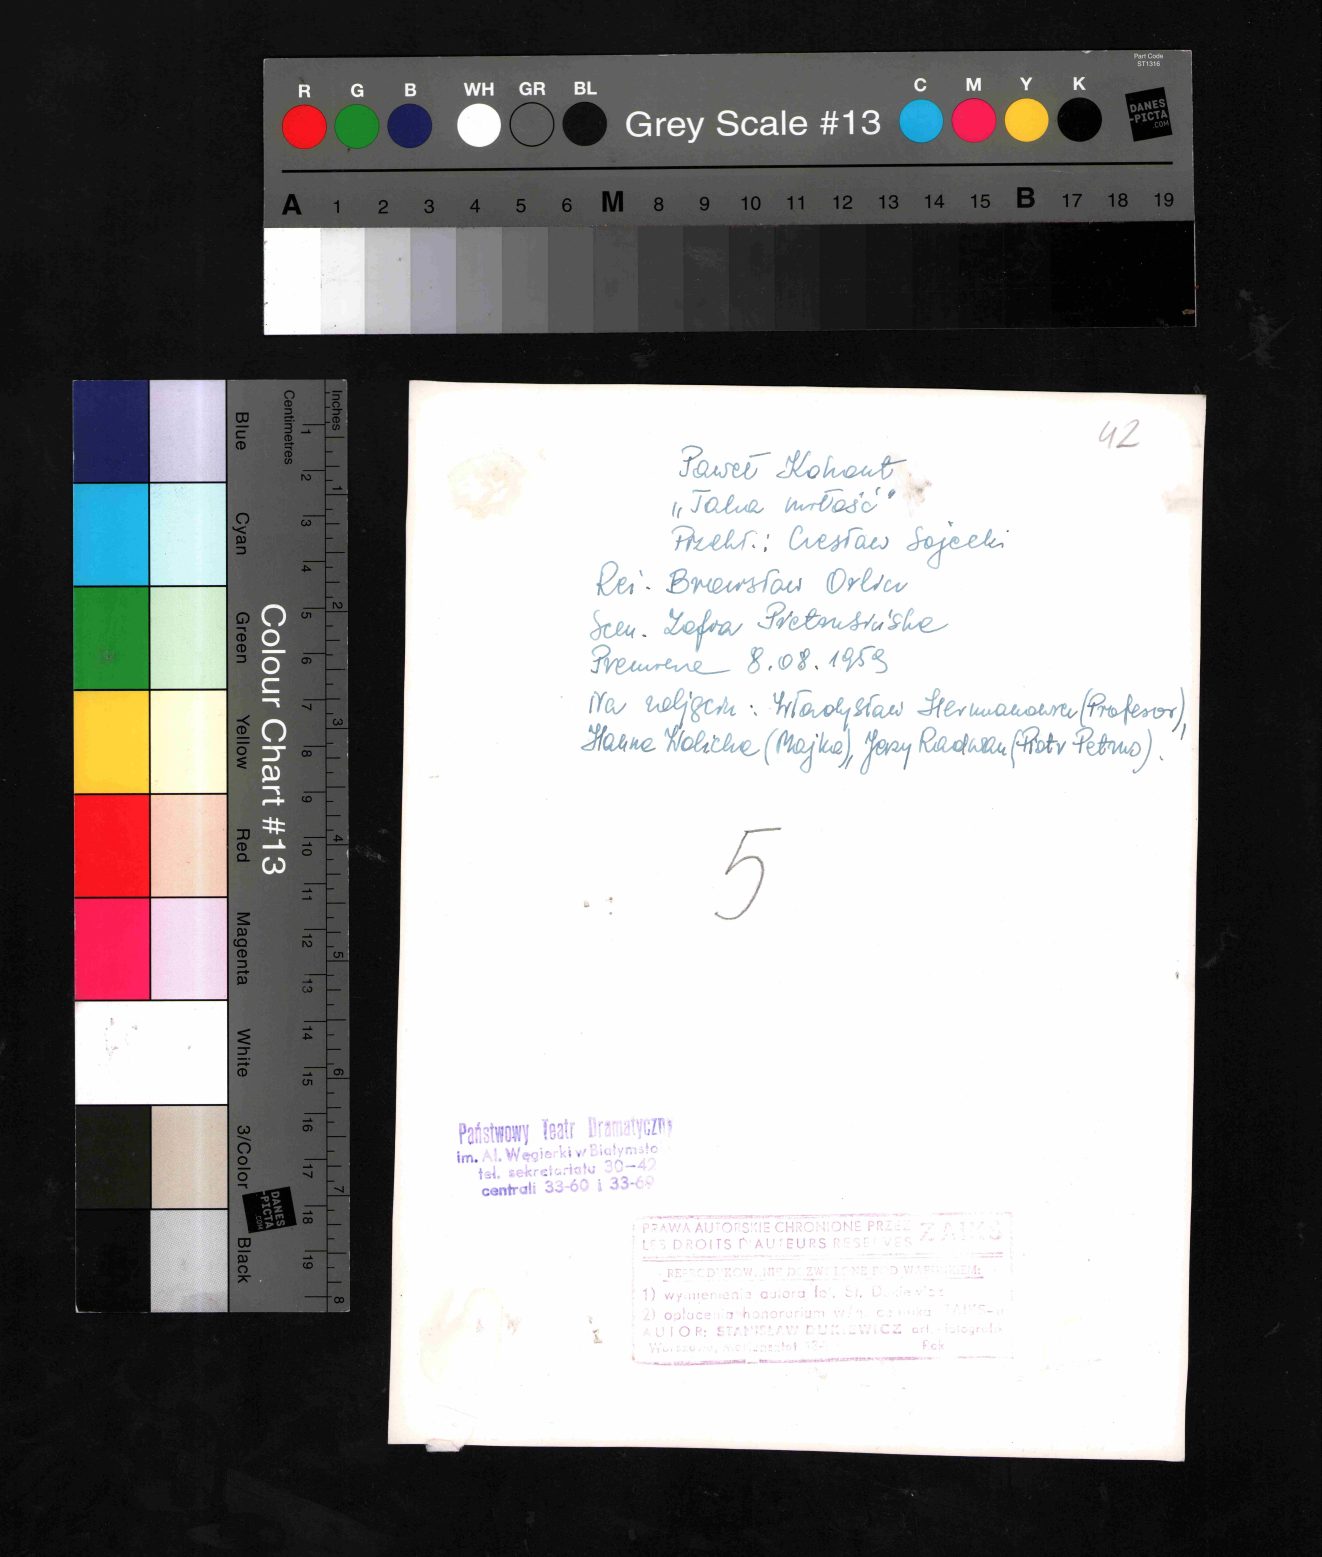 Part Code
ST1316
R G B WH GR BL Grey Scale #13 C M Y K
DANES
-PICTA
.COM
A 1 2 3 4 5 6 M 8 9 10 11 12 13 14 15 B 17 18 19
Inches
Centimetres
1 2 3 4 5 6 7 8 9 10 11 12 13 14 15 16 17 18 19
1 2 3 4 5 6 7 8
Colour Chart #13
Blue
Cyan
Green
Yellow
Red
Magenta
White
3/Color
Black
DANES
-PICTA
.COM
42
Paweł Kohout
„Taka miłość"
Przekł.: Czesław Sojecki
Reż. Bronisław Orlicz
Scen. Zofia Pietrusińska
Premiera 8.08.1959
Na zdjęciu: Władysław (Profesor),
Hanna (Majka), Jerzy Radwan (Piotr Petrus).
5
Państwowy Teatr Dramatyczny
im. Al. Węgierki w Białymsto
tel. sekretariatu 30-42
centrali 33-60 i 33-69
PRAWA AUTORSKIE CHRONIONE PRZEZ ZAIKS
LES DROITS D'AUTEURS RESERVES
1) wymienienia autora fot. St. Dukiewicz
2) opłacenia honorarium
AUTOR: STANISŁAW DUKIEWICZ art. fotografik
Warszawa, Rok